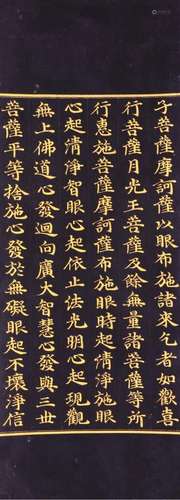 子菩薩摩訶薩以眼布施諸來乞者如歡喜
行菩薩月光王菩薩及餘無量諸菩薩等所
行惠施菩薩摩訶薩布施眼時起清淨施眼
心起清淨智眼心起依止法光明心起現觀
無上佛道心發迴向廣大智慧心發與三世
菩薩平等捨施心發於無礙眼起不壞淨信